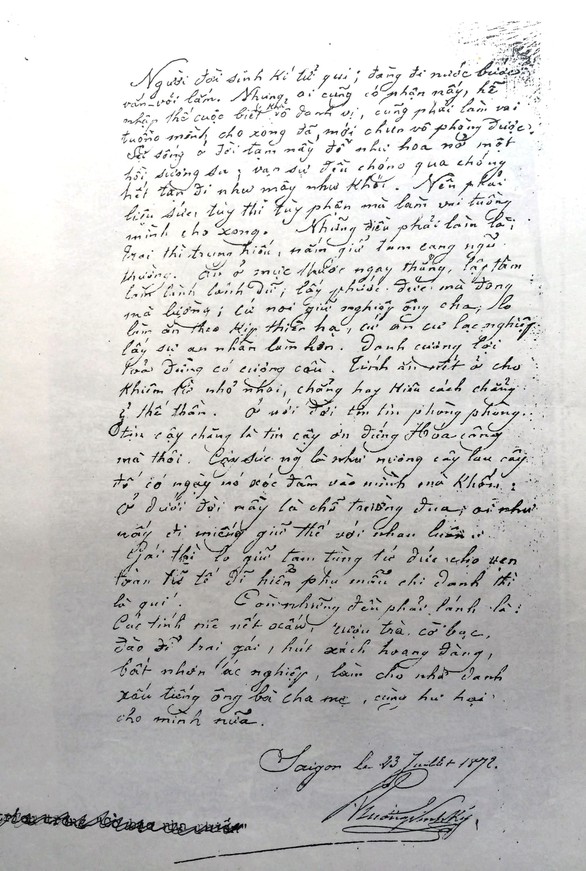 Người đời sinh kí tử qui; đàng đi nước bước
vắn-vỏi lắm. Nhưng ai cũng có phận nấy, hễ
nhập thế cuộc bất khả vô danh vị, cũng phải làm vai
tuồng mình, cho xong đã, mới chun vô phòng được.
Sự sống ở đời tạm nầy đỗ như hoa nở một
hồi sương sa; vạn sự đều chóng qua chóng
hết tan đi như mây như khói. Nên phải
liệu sức, tùy thì tùy phận mà làm vai tuồng
mình cho xong. Những điều phải làm là:
trai thì trung hiếu, nắm giữ tam cang ngũ
thường. Ăn ở mực thước ngay thẳng, lập tâm
làm lành lánh dữ, lấy phước đức mà đong
mà lường; cứ noi giữ nghiệp ông cha; lo
làm ăn theo kịp thiên hạ, cứ an cư lạc nghiệp
lấy sự an nhàn làm hơn. Danh cương lợi
toả đừng có cượng cầu. Tính ăn nết ở cho
khiêm từ nhỏ nhoi, chẳng hay kiểu cách chẳng
ỷ thế thần. Ở với đời tin tín phòng phòng.
tin cậy chăng là tin cậy ơn đứng Hóa công
mà thôi. Cậy sức ng là như miếng cây lau cây
tố có ngày nó xóc đâm vào mình mà khốn;
ở dưới đời nầy là chỗ trường đua; ai như
nấy đi miếng giữ thế với nhau luôn.
Gái thì lo giữ tam tùng tứ đức cho vẹn
toàn tử tế để hiển phụ mẫu chi danh thì
là quí. Còn những đều phải lánh là:
Các tính mê nết xấu, rượu trà, cờ bạc,
đào đĩ trai gái, hút xách hoang đàng,
bất nhơn ác nghiệp, làm cho nhơ danh
xấu tiếng ông bà cha mẹ, cùng hư hại
cho mình nữa.
Saigon le 23 Juillet 1872.